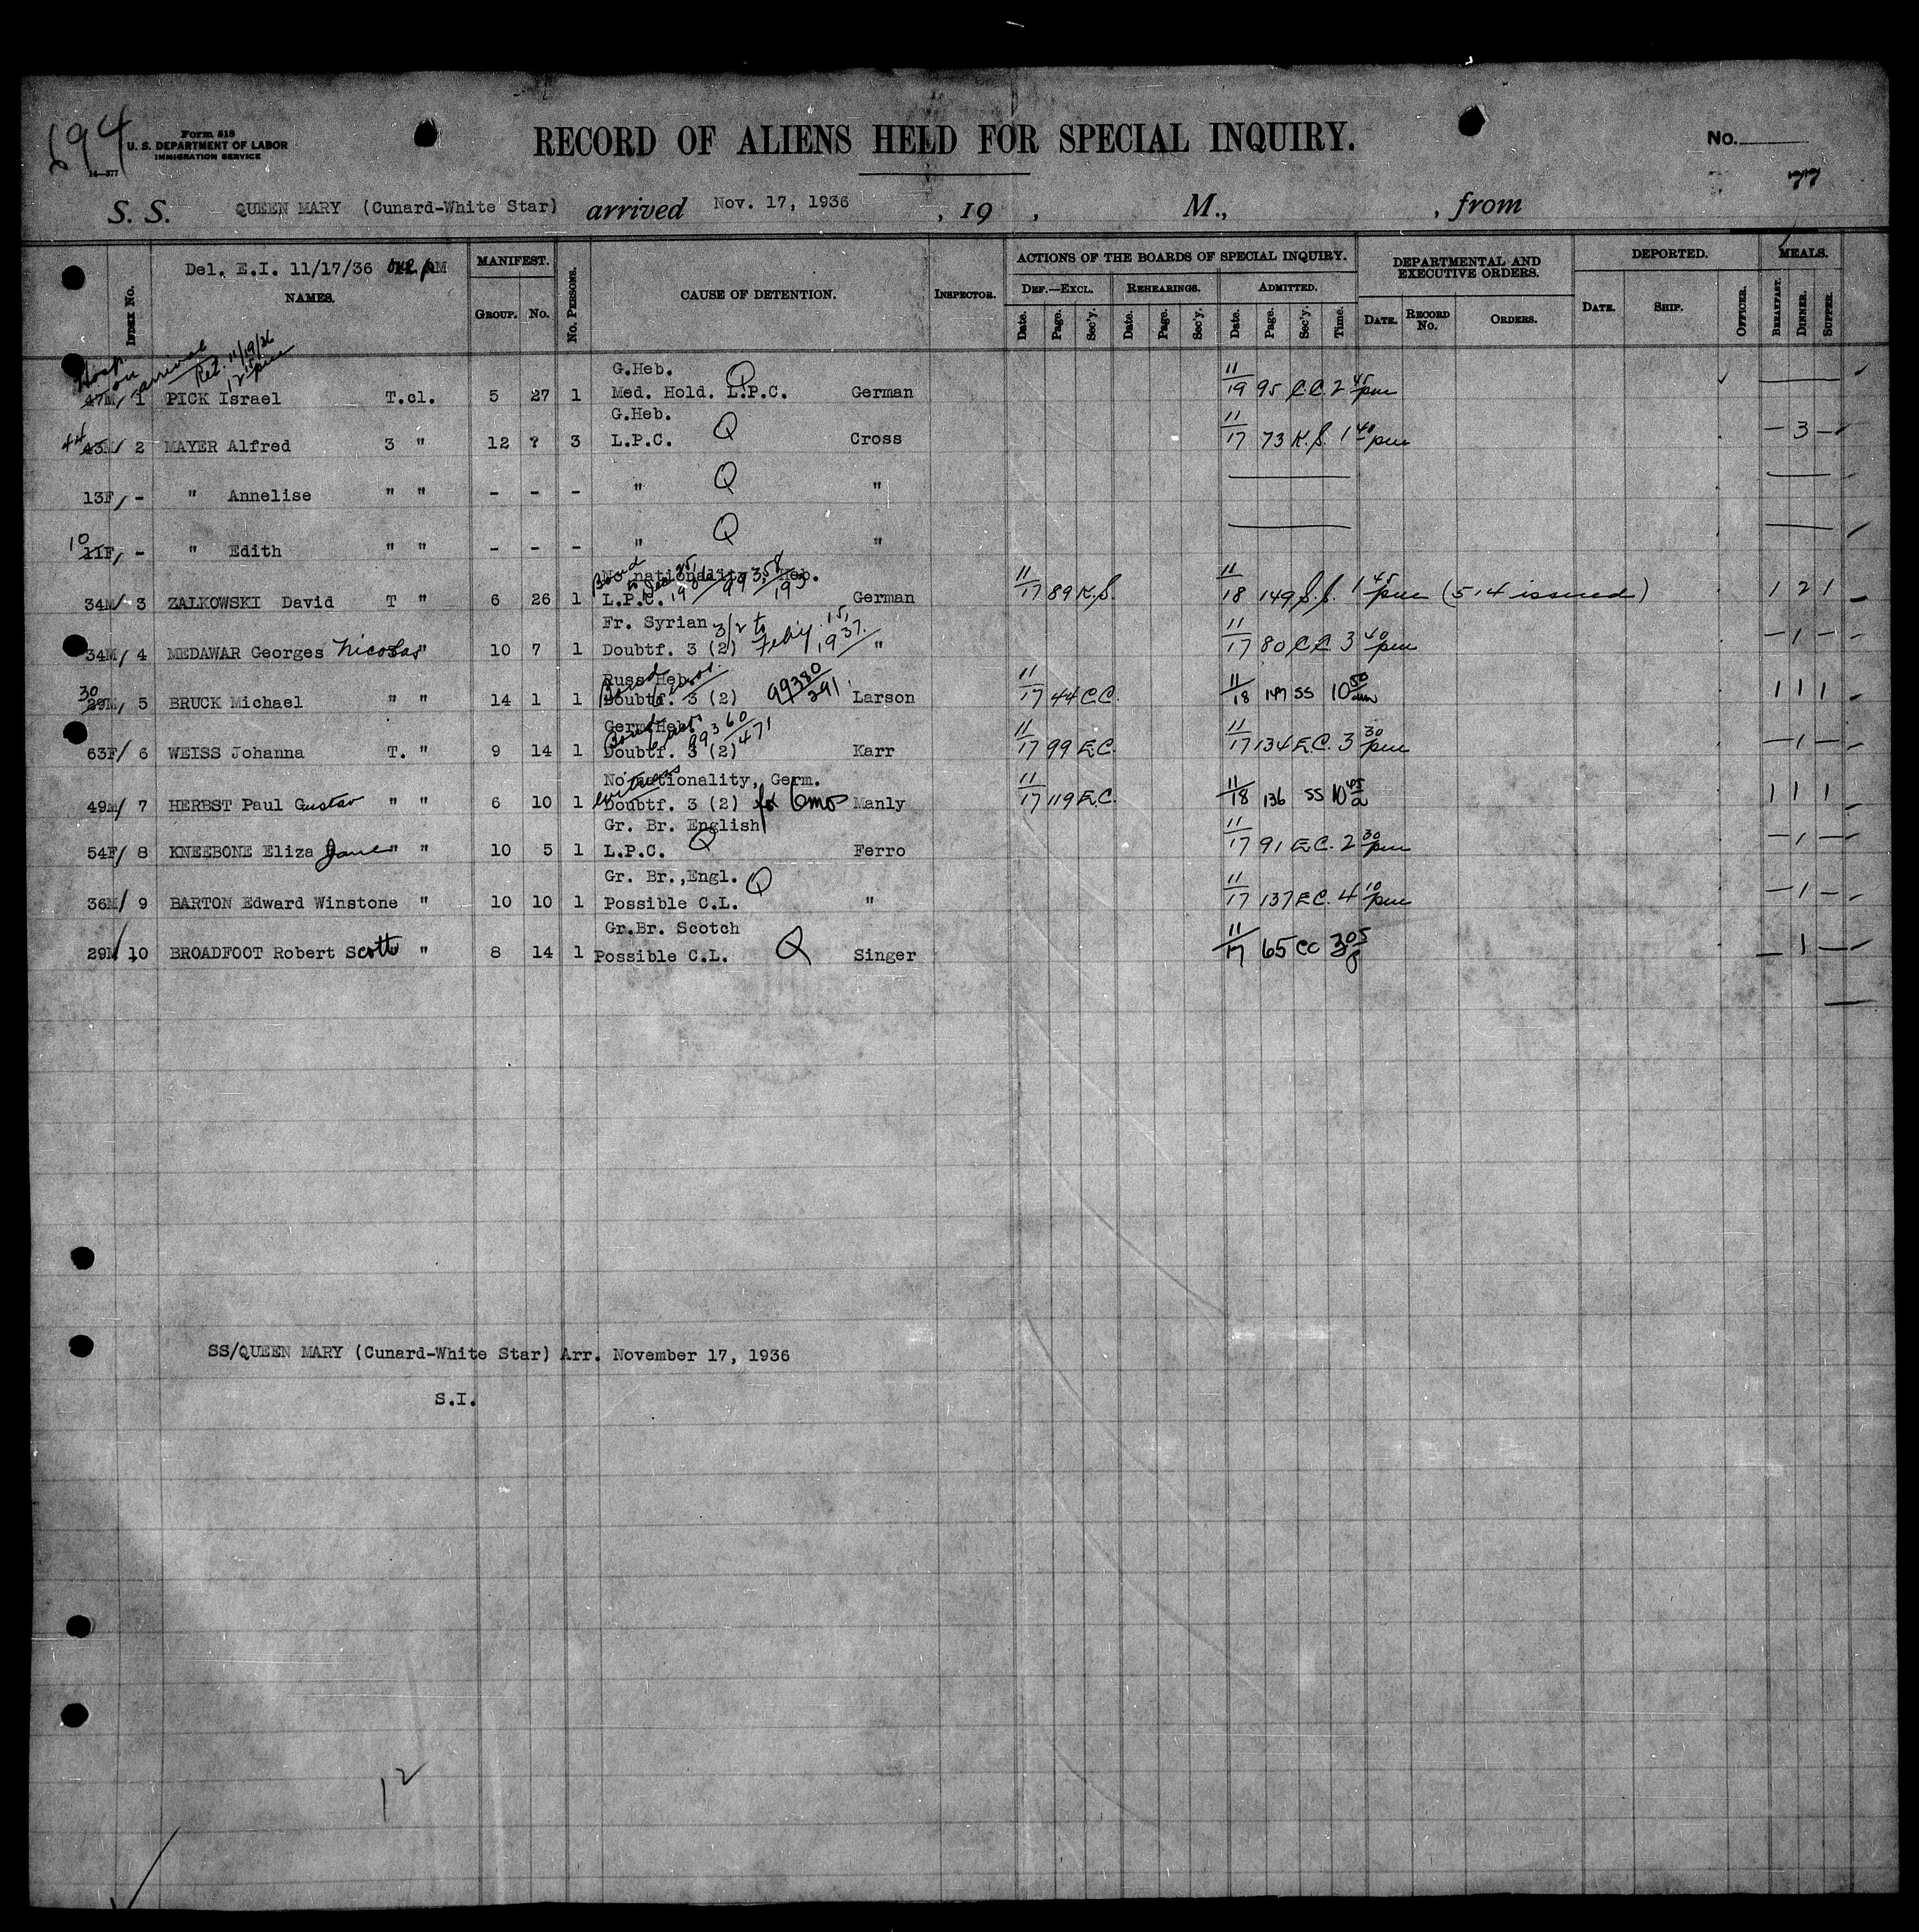 694
Form 518
U. S. DEPARTMENT OF LABOR
IMMIGRATION SERVICE
RECORD OF ALIENS HELD FOR SPECIAL INQUIRY.
No.
77
S. S. QUEEN MARY (Cunard-White Star) arrived Nov. 17, 1936 , 19 , M., , from
Del. E.I. 11/17/36 PM
NAMES.
INDEX No.
MANIFEST.
GROUP. No.
No. PERSONS.
CAUSE OF DETENTION.
INSPECTOR.
ACTIONS OF THE BOARDS OF SPECIAL INQUIRY.
DEF.—EXCL. REHEARINGS. ADMITTED.
Date. Page. Sec'y. Date. Page. Sec'y. Date. Page. Sec'y. Time.
DEPARTMENTAL AND EXECUTIVE ORDERS.
DATE. RECORD No. ORDERS.
DEPORTED.
DATE. SHIP. OFFICER.
MEALS.
BREAKFAST. DINNER. SUPPER.
Hosp. on arrival Rel. 11/19/36 12 15 pm
G.Heb.
47M, 1 PICK Israel T.cl. 5 27 1 Med. Hold. L.P.C. Q German 11/19 95 C.C. 2 45 pm
G.Heb.
44 43M/ 2 MAYER Alfred 3 " 12 ? 3 L.P.C. Q Cross 11/17 73 K.S. 1 40 pm — 3 —
13F, - " Annelise " " - - - " Q "
10 11F, - " Edith " " - - - " Q "
No nationality, Heb.
Bond to Dec 25, 1936 99358/193
34M/ 3 ZALKOWSKI David T " 6 26 1 L.P.C. German 11/17 89 K.S. 11/18 149 S.S. 1 45 pm (514 issued) 1 2 1
Fr. Syrian 3/2 to Feby. 15, 1937.
34M/ 4 MEDAWAR Georges Nicolas " 10 7 1 Doubtf. 3 (2) " 11/17 80 C.C. 3 40 pm — 1 —
Russ Heb. Bond 6 mos. 99380/291
30 29M, 5 BRUCK Michael " " 14 1 1 Doubtf. 3 (2) Larson 11/17 44 C.C. 11/18 147 SS 10 50 am 1 1 1
Germ Heb. Bond 6 mos 99360/471
63F/ 6 WEISS Johanna T. " 9 14 1 Doubtf. 3 (2) Karr 11/17 99 E.C. 11/17 134 E.C. 3 30 pm — 1 —
No nationality, Germ.
49M/ 7 HERBST Paul Gustav " " 6 10 1 Doubtf. 3 (2) for 6 mos Manly 11/17 119 E.C. 11/18 136 SS 10 45 a 1 1 1
Gr. Br. English
54F/ 8 KNEEBONE Eliza Jane " " 10 5 1 L.P.C. Q Ferro 11/17 91 E.C. 2 30 pm — 1 —
Gr. Br.,Engl.
36M/ 9 BARTON Edward Winstone " 10 10 1 Possible C.L. Q " 11/17 137 E.C. 4 10 pm — 1 —
Gr.Br. Scotch
29M 10 BROADFOOT Robert Scott " 8 14 1 Possible C.L. Q Singer 11/17 65 CC 3 05 p — 1 —
SS/QUEEN MARY (Cunard-White Star) Arr. November 17, 1936
S.I.
12